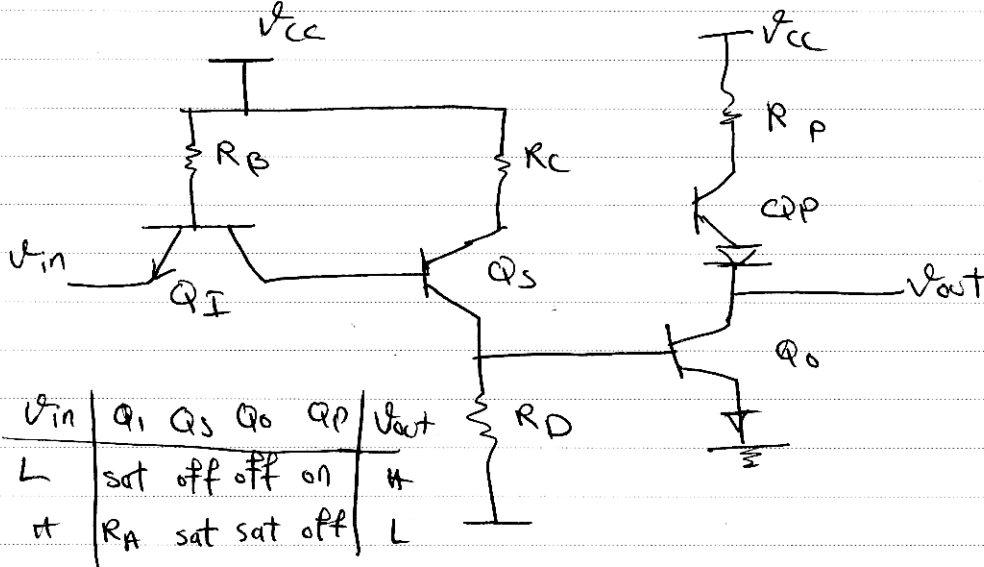 Vcc
Vcc
RB
RC
RP
QP
Vin
QI
QS
Vout
Qo
RD
Vin Q1 QS Qo QP Vout
L sat off off on H
H RA sat sat off L